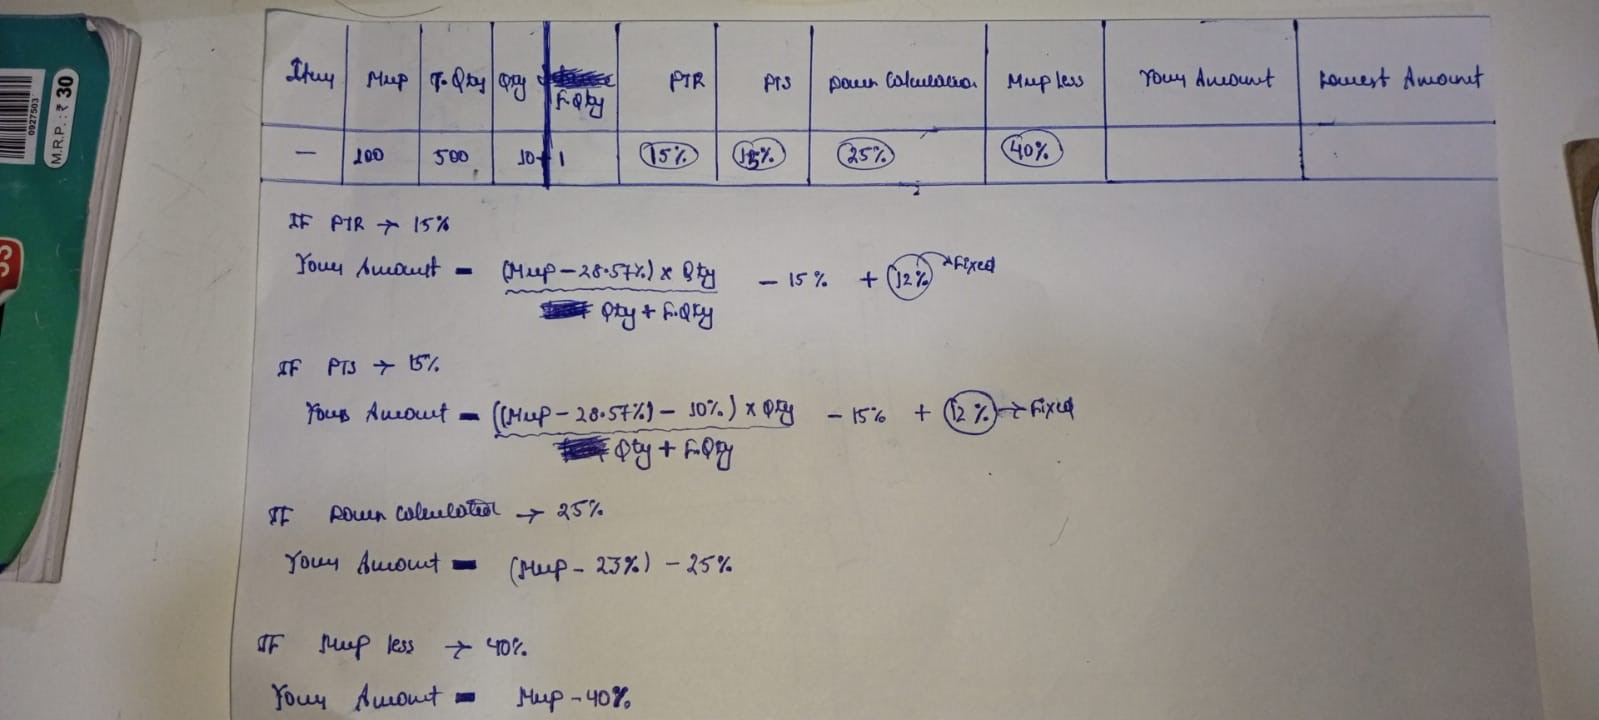 0927503
M.R.P.: ₹ 30
Item Mrp T.Qty Qty F.Qty PTR PTS Down Calculation Mrp Less Your Amount Lowest Amount
— 100 500 10+1 15% 15% 25% 40%
IF PTR → 15%
Your Amount = (Mrp - 28.57%) x Qty - 15% + 12% → Fixed
Qty + F.Qty
IF PTS → 15%
Your Amount = ((Mrp - 28.57%) - 10%) x Qty - 15% + 12% → Fixed
Qty + F.Qty
IF Down Calculation → 25%
Your Amount = (Mrp - 23%) - 25%
IF Mrp less → 40%
Your Amount = Mrp - 40%